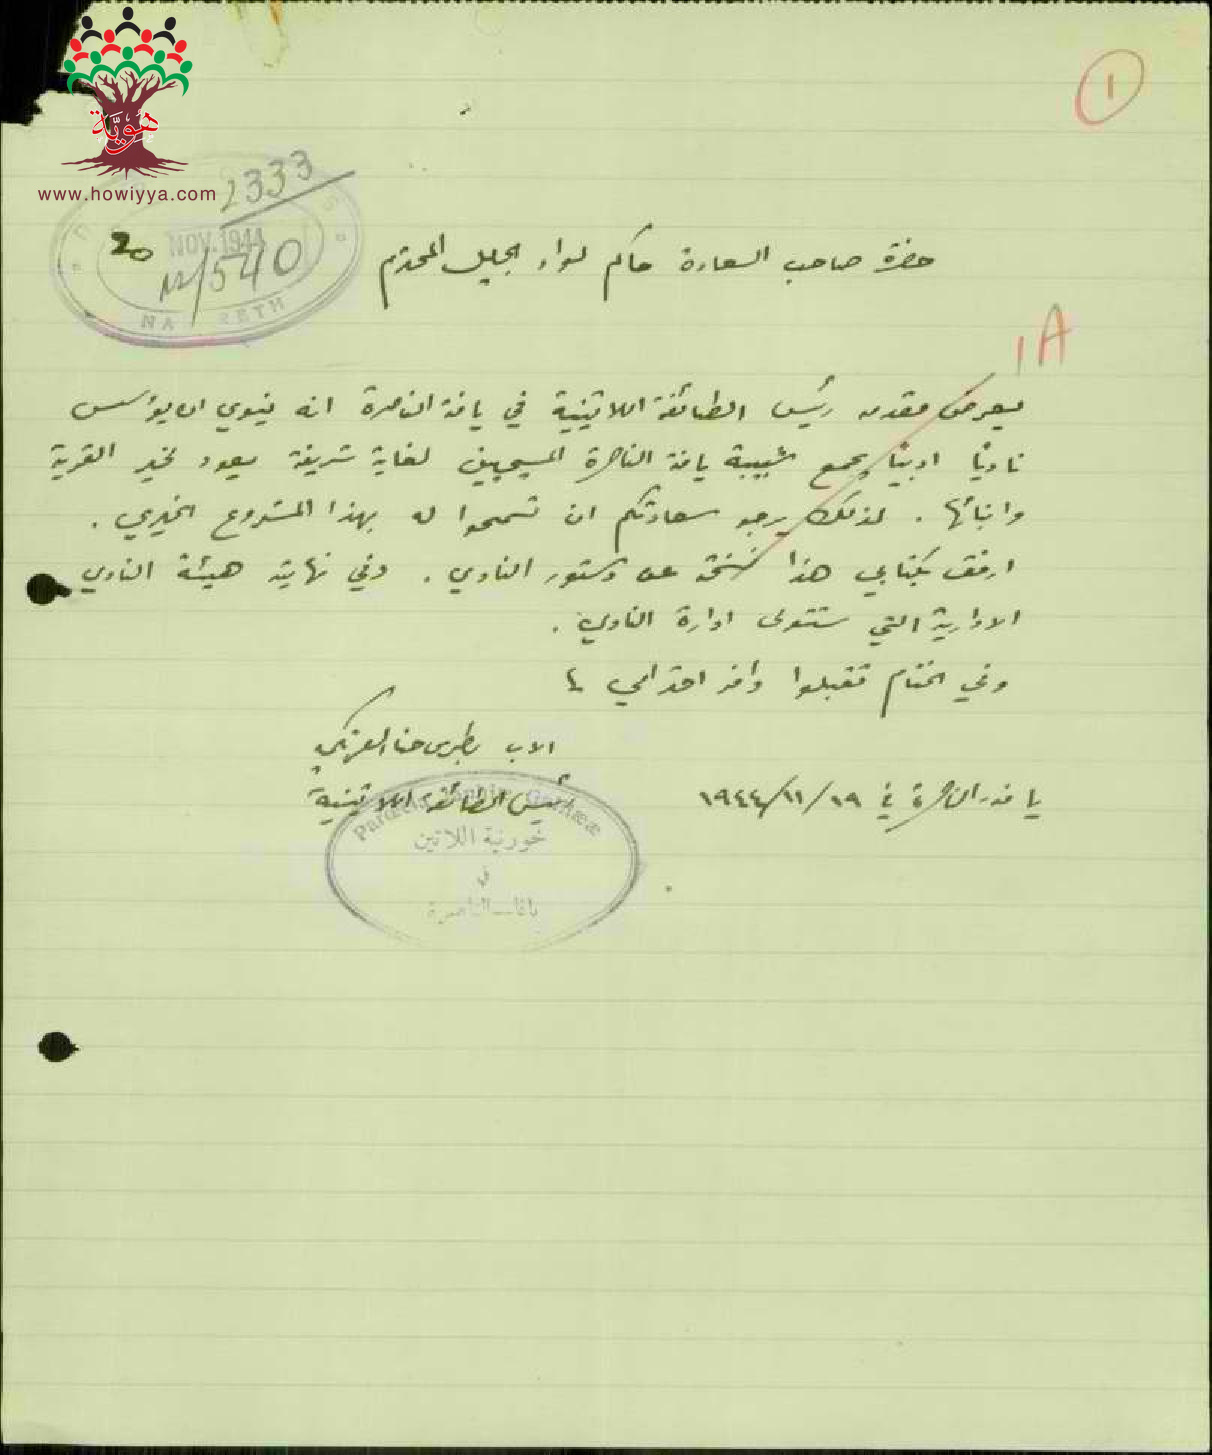 ١
هوية
www.howiyya.com
2333
20 NOV. 1944
540
NA RETH
حضرة صاحب السعادة حاكم لواء الجليل المحترم
1A
يعرض مقدمه رئيس الطائفة اللاتينية في يافة الناصرة انه ينوي ان يؤسس
ناديًا ادبيًا يجمع شبيبة يافة الناصرة المسيحيين لغاية شريفة يعود لخير القرية
وابنائها . لذلك يرجو سعادتكم ان تسمحوا له بهذا المشروع الخيري .
ارفق بكتابي هذا نسخة عن دستور النادي . وفي نهايته هيئة النادي
الادارية التي ستتولى ادارة النادي .
وفي الختام تقبلوا وافر احترامي
الاب بطرس حنا
رئيس الطائفة اللاتينية
يافة الناصرة في ١٩/١١/١٩٤٤
خورنية اللاتين
في
يافة الناصرة